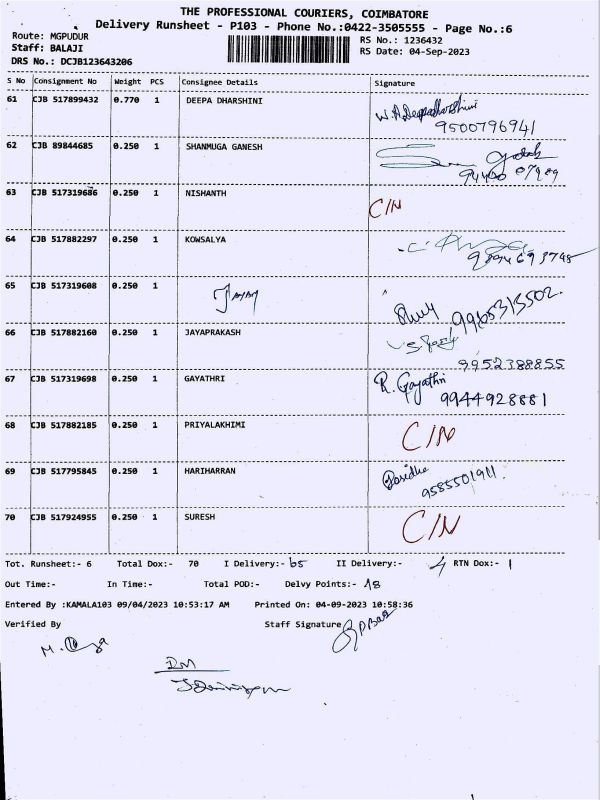 THE PROFESSIONAL COURIERS, COIMBATORE
Delivery Runsheet - P103 - Phone No.:0422-3505555 - Page No.:6
Route: MGPUDUR
Staff: BALAJI
DRS No.: DCJB123643206
RS No.: 1236432
RS Date: 04-Sep-2023
S No Consignment No Weight PCS Consignee Details Signature
61 CJB 517899432 0.770 1 DEEPA DHARSHINI
9500796941
62 CJB 89844685 0.250 1 SHANMUGA GANESH
63 CJB 517319686 0.250 1 NISHANTH C/N
64 CJB 517882297 0.250 1 KOWSALYA
65 CJB 517319608 0.250 1
9965313502.
66 CJB 517882160 0.250 1 JAYAPRAKASH
9952388855
67 CJB 517319698 0.250 1 GAYATHRI R. Gayathri
9944928881
68 CJB 517882185 0.250 1 PRIYALAKHIMI C/N
69 CJB 517795845 0.250 1 HARIHARRAN
9585501911.
70 CJB 517924955 0.250 1 SURESH C/N
Tot. Runsheet:- 6 Total Dox:- 70 I Delivery:- 65 II Delivery:- 4 RTN Dox:- 1
Out Time:- In Time:- Total POD:- Delvy Points:- 18
Entered By :KAMALA103 09/04/2023 10:53:17 AM Printed On: 04-09-2023 10:58:36
Verified By Staff Signature
DM